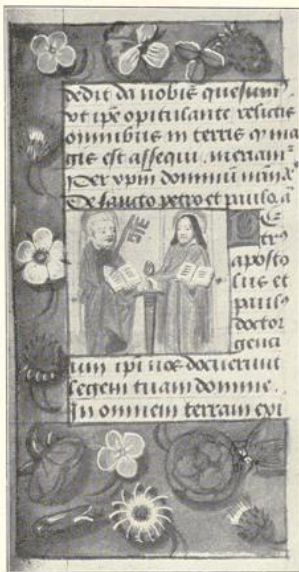 dedit da nobis quesum
vt ipe opitulante relictis
omnibus in terris q ma
gis est assequi meriam
Per xpm dominū nrm
De sancto petro et paulo a
Pe
trus
aposto
lus et
paulꝰ
doctor
genci
um ipi nos docuerunt
legem tuam domine
In omnem terram exi